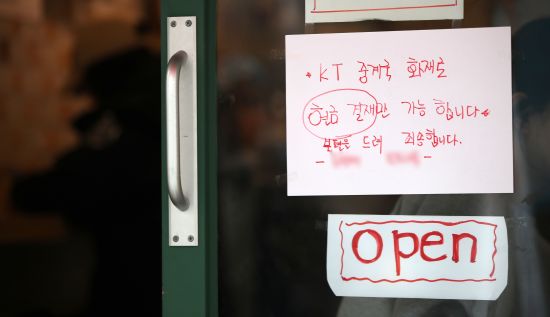 * KT 중계국 화재로
현금 결재만 가능 합니다*
불편을 드려 죄송합니다.
Open